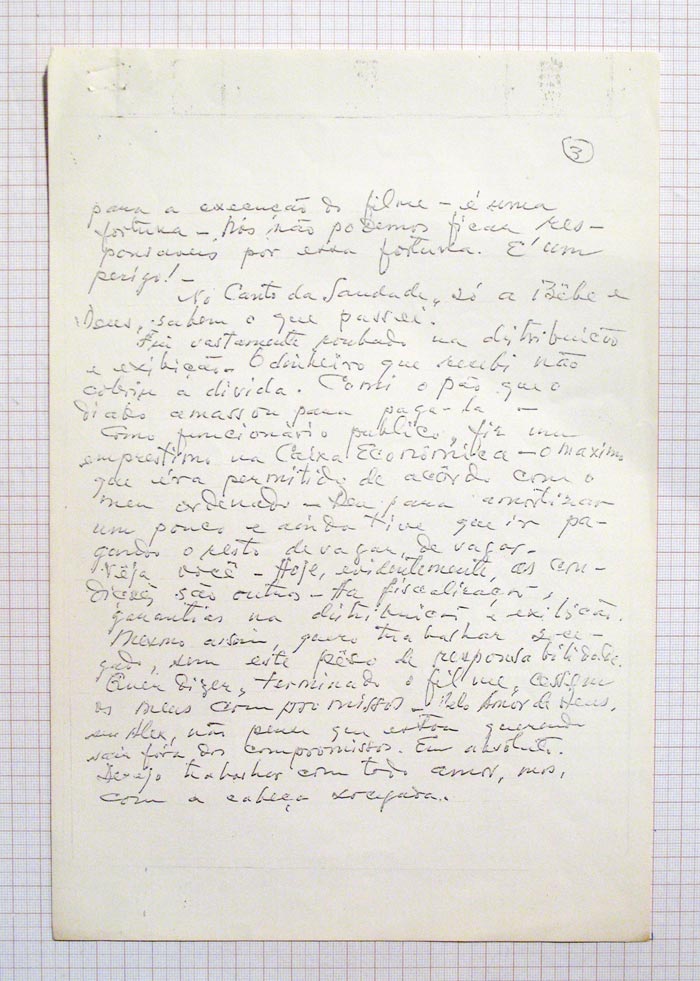 3
para a execução do filme - é uma
fortuna - Nós não podemos ficar res-
ponsaveis por essa fortuna. E' um
perigo! -
No Canto da Saudade, só a Bêbe e
Deus, sabem o que passei.
Fui vastamente roubado na distribuição
e exibição. O dinheiro que recebi não
cobriu a divida. Comi o pão que o
diabo amassou para paga-la -
Como funcionário publico, fiz um
emprestimo na Caixa Econômica - o maximo
que éra permitido de acôrdo com o
meu ordenado - Deu para amortizar
um pouco e ainda tive que ir pa-
gando o resto devagar, devagar -
Vêja você - Hoje, evidentemente, as con-
dições são outras - Ha fiscalização,
garantias na distribuição e exibição.
Mesmo assim, quero trabalhar soce-
gado, sem este pêso de responsabilidade.
Quer dizer, terminado o filme, cessam
os meus compromissos - Pelo Amor de Deus,
seu Alex, não pense que estou querendo
sair fóra dos compromissos. Em absoluto.
Desejo trabalhar com todo amor, mas,
com a cabeça socegada..